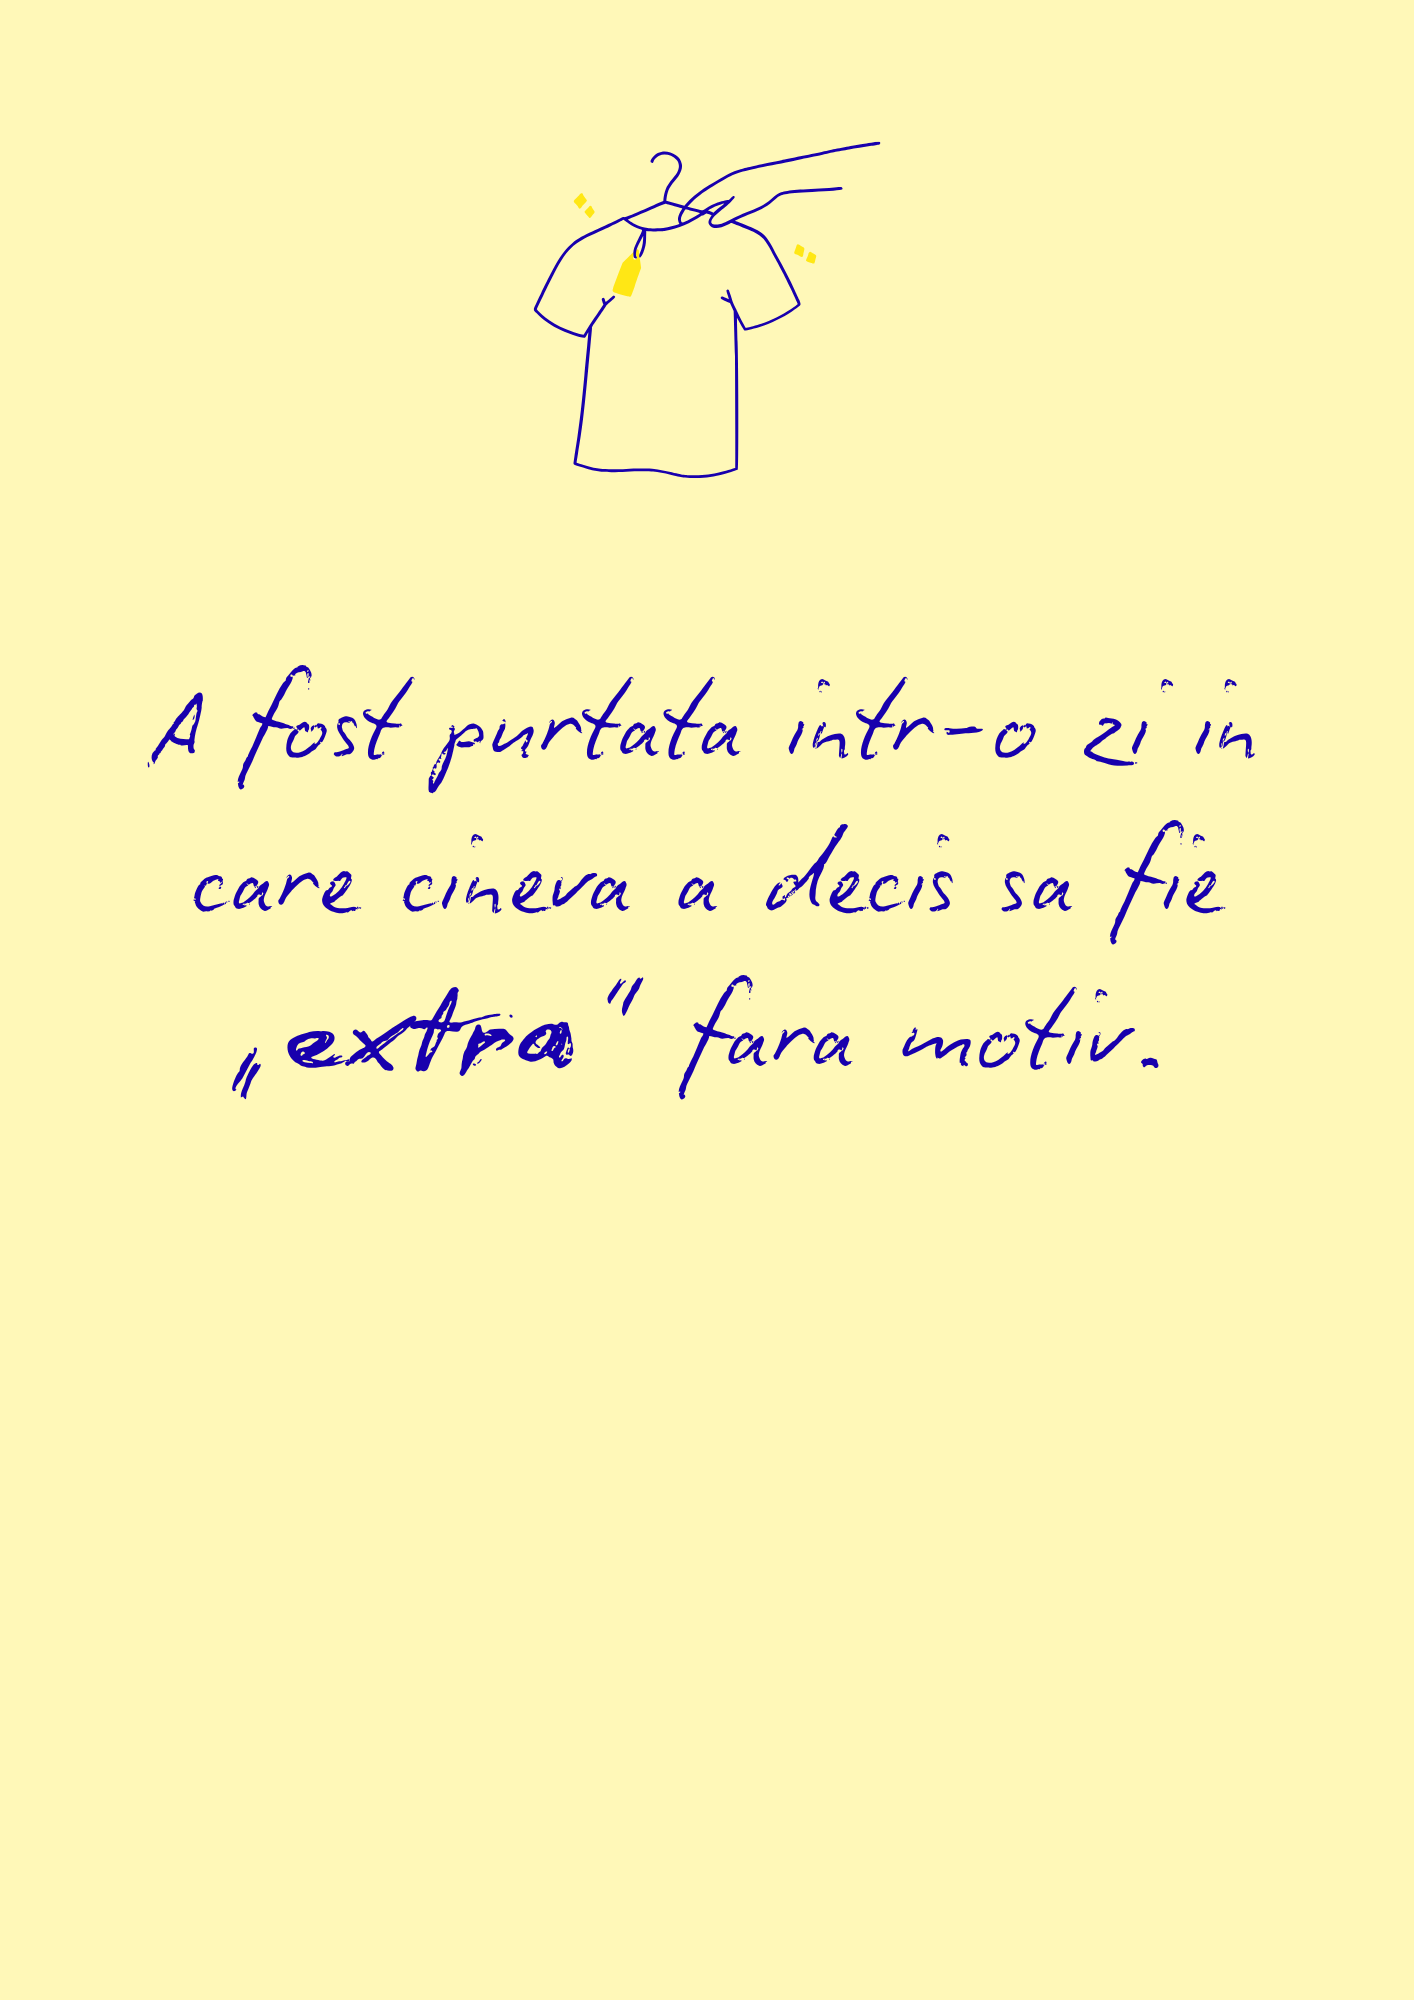 A fost purtata intr-o zi in
care cineva a decis sa fie
„extra” fara motiv.